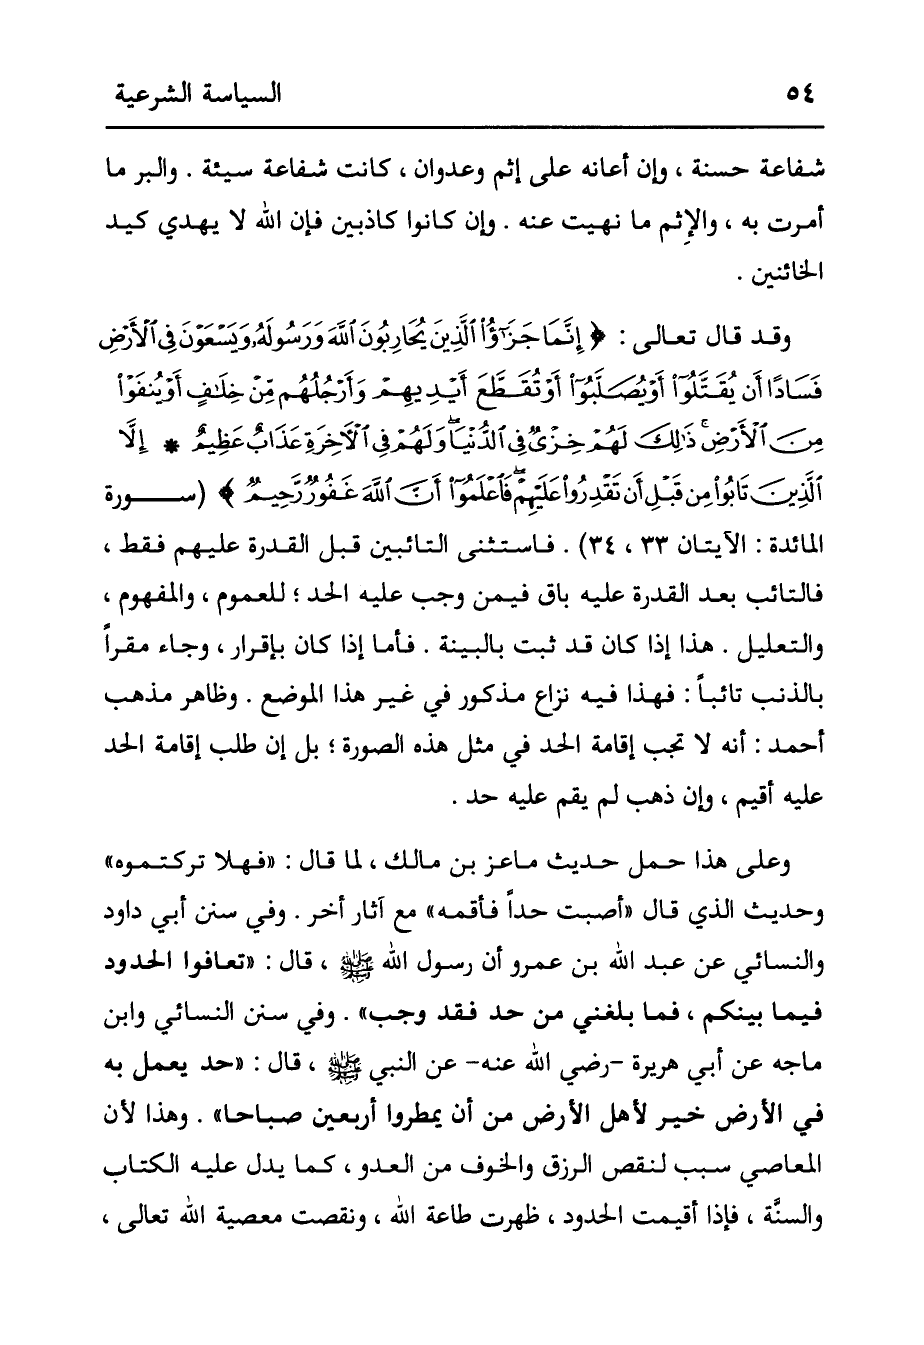 ٥٤ السياسة الشرعية
شفاعة حسنة ، وإن أعانه على إثم وعدوان ، كانت شفاعة سيئة . والبر ما
أمرت به ، والإثم ما نهيت عنه . وإن كانوا كاذبين فإن الله لا يهدي كيد
الخائنين .
وقد قال تعالى : ﴿ إِنَّمَا جَزَٰٓؤُا۟ ٱلَّذِينَ يُحَارِبُونَ ٱللَّهَ وَرَسُولَهُۥ وَيَسْعَوْنَ فِى ٱلْأَرْضِ
فَسَادًا أَن يُقَتَّلُوٓا۟ أَوْ يُصَلَّبُوٓا۟ أَوْ تُقَطَّعَ أَيْدِيهِمْ وَأَرْجُلُهُم مِّنْ خِلَٰفٍ أَوْ يُنفَوْا۟
مِنَ ٱلْأَرْضِ ۚ ذَٰلِكَ لَهُمْ خِزْىٌ فِى ٱلدُّنْيَا ۖ وَلَهُمْ فِى ٱلْءَاخِرَةِ عَذَابٌ عَظِيمٌ * إِلَّا
ٱلَّذِينَ تَابُوا۟ مِن قَبْلِ أَن تَقْدِرُوا۟ عَلَيْهِمْ ۖ فَٱعْلَمُوٓا۟ أَنَّ ٱللَّهَ غَفُورٌ رَّحِيمٌ ﴾ (ســــورة
المائدة : الآيتان ٣٣ ، ٣٤) . فاستثنى التائبين قبل القدرة عليهم فقط ،
فالتائب بعد القدرة عليه باق فيمن وجب عليه الحد ؛ للعموم ، والمفهوم ،
والتعليل . هذا إذا كان قد ثبت بالبينة . فأما إذا كان بإقرار ، وجاء مقراً
بالذنب تائباً : فهذا فيه نزاع مذكور في غير هذا الموضع . وظاهر مذهب
أحمد : أنه لا تجب إقامة الحد في مثل هذه الصورة ؛ بل إن طلب إقامة الحد
عليه أقيم ، وإن ذهب لم يقم عليه حد .
وعلى هذا حمل حديث ماعز بن مالك ، لما قال : «فهلا تركتموه»
وحديث الذي قال «أصبت حداً فأقمه» مع آثار أخر . وفي سنن أبي داود
والنسائي عن عبد الله بن عمرو أن رسول الله ﷺ ، قال : «تعافوا الحدود
فيما بينكم ، فما بلغني من حد فقد وجب» . وفي سنن النسائي وابن
ماجه عن أبي هريرة -رضي الله عنه- عن النبي ﷺ ، قال : «حد يعمل به
في الأرض خير لأهل الأرض من أن يمطروا أربعين صباحا» . وهذا لأن
المعاصي سبب لنقص الرزق والخوف من العدو ، كما يدل عليه الكتاب
والسنَّة ، فإذا أقيمت الحدود ، ظهرت طاعة الله ، ونقصت معصية الله تعالى ،